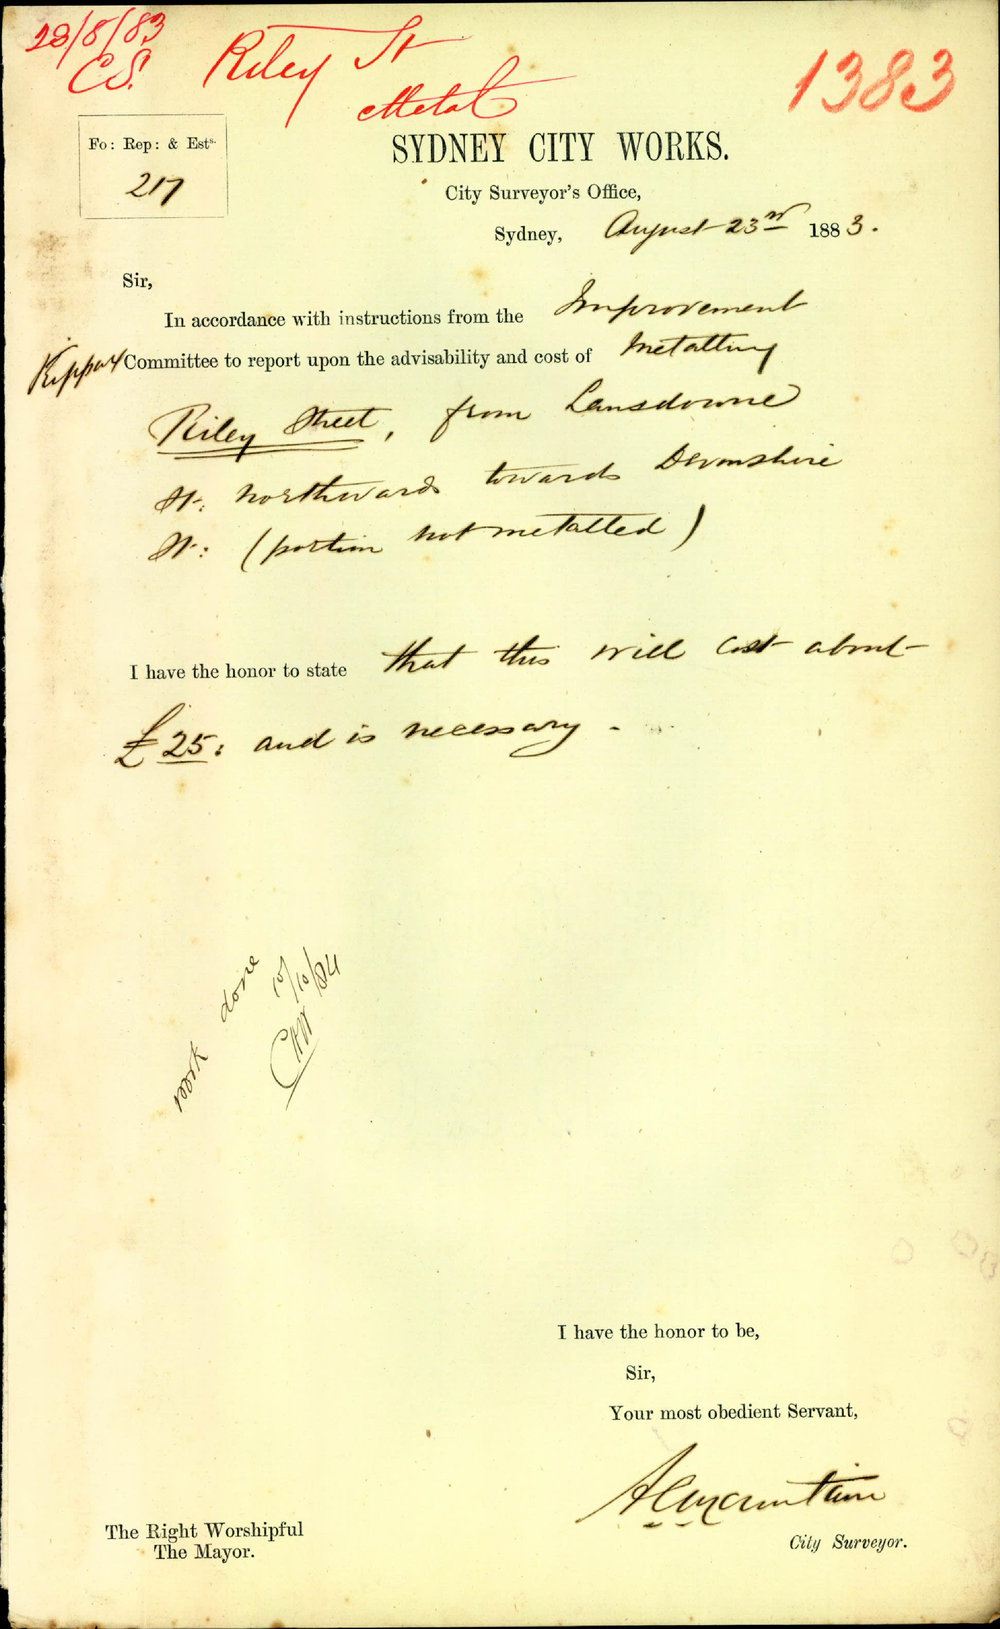 28/8/83
CS.
Riley St
Metal
1383
Fo: Rep: & Ests.
217
SYDNEY CITY WORKS.
City Surveyor's Office,
Sydney, August 23rd 1883.
Sir,
In accordance with instructions from the Improvement
Kippax Committee to report upon the advisability and cost of Metalling
Riley Street, from Lansdowne
St: northwards towards Devonshire
St: (portion not metalled)
I have the honor to state that this will cost about
£25: and is necessary.
work done
10/10/84
I have the honor to be,
Sir,
Your most obedient Servant,
A C Mountain
City Surveyor.
The Right Worshipful
The Mayor.